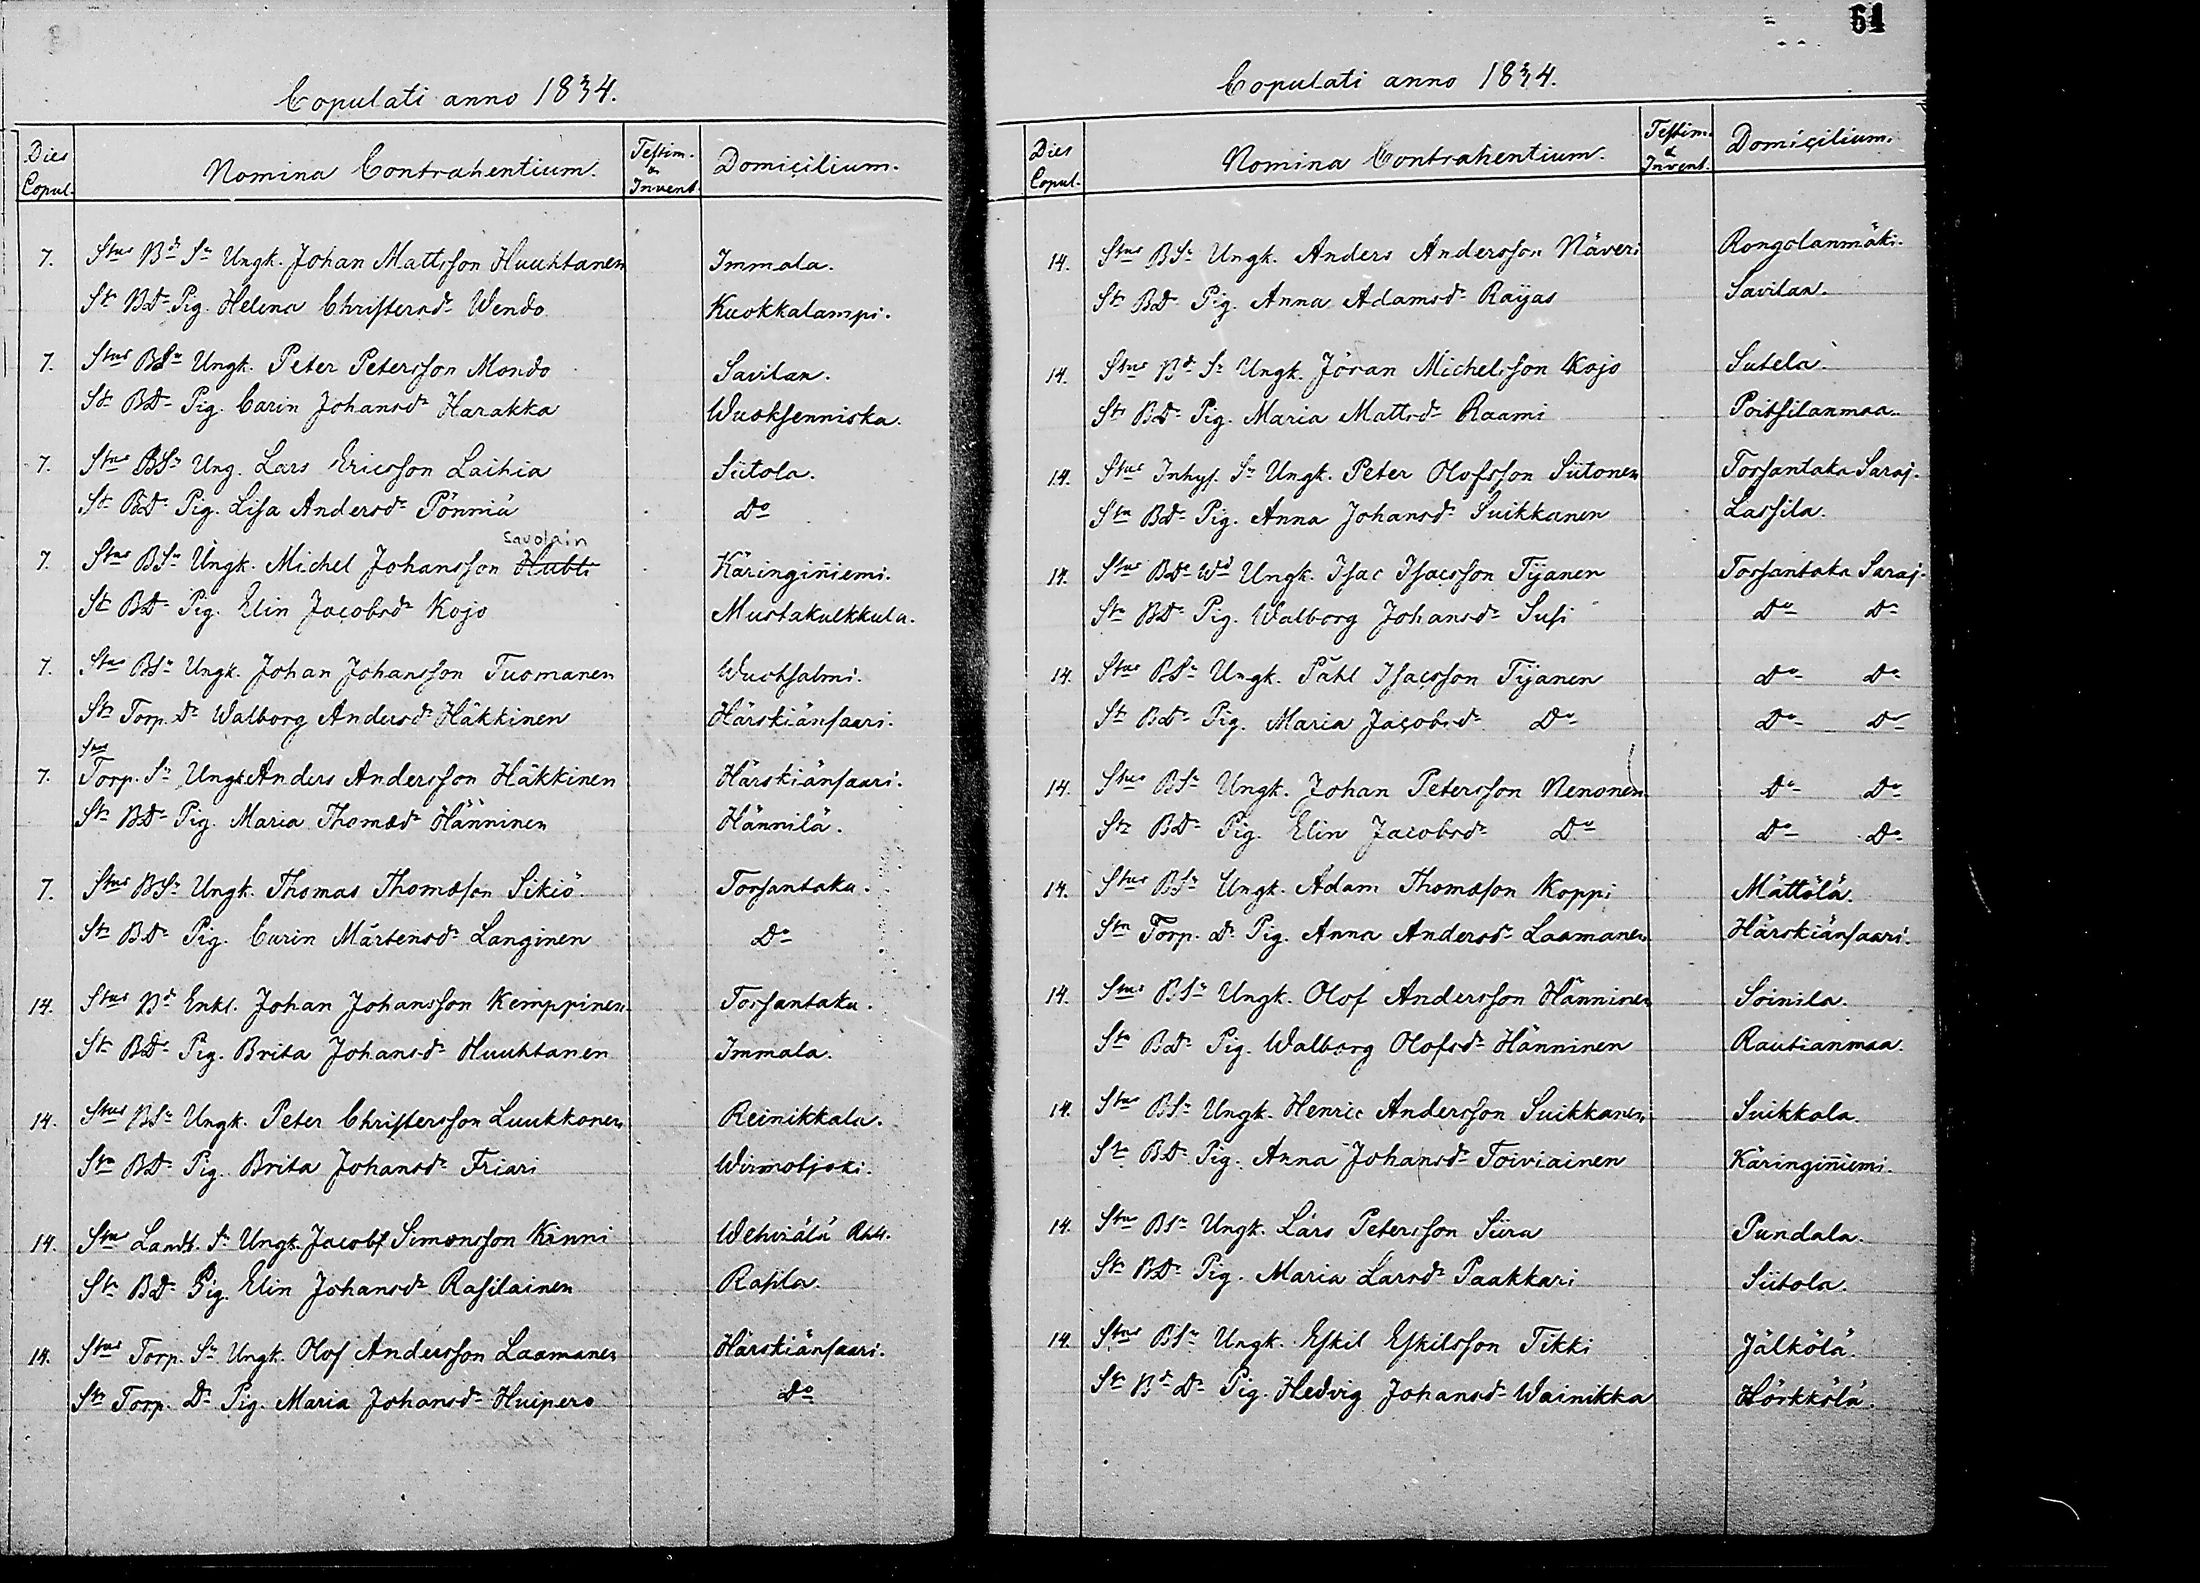 Copulati anno 1834.
Dies Copul. Nomina Contrahentium. Testim. & Invent. Domicilium.
7. Stus Bd Sn Ungk. Johan Mattsson Huuhtanen Immala.
St BDr Pig. Helena Christersdr Wendo Kuokkalampi.
7. Stus BSn Ungk. Peter Petersson Mondo Savilan.
St BDr Pig. Carin Johansdr Harakka Wuoksenniska.
7. Stus BSn Ung. Lars Ericsson Laihia Siitola.
St BDr Pig. Lisa Andersdr Pönniä Do
Savolain
7. Stus BSn Ungk. Michel Johansson Hubli Käringiniemi.
St BDr Pig. Elin Jacobsdr Kojo Mustakulkkula.
7. Stus BSn Ungk. Johan Johansson Tuomanen Wuoksalmi.
Stn Torp. Dr Walborg Andersdr Häkkinen Härskiänsaari.
Stus
7. Torp. Sn Ungk. Anders Andersson Häkkinen Härskiänsaari.
Stn BDr Pig. Maria Thomasdr Hänninen Hännilä.
7. Stus BSn Ungk. Thomas Thomasson Sikiö Torsantaka.
Stn BDr Pig. Carin Mårtensdr Langinen Do
14. Stus Bd Enkl. Johan Johansson Kemppinen Torsantaka.
Stn BDr Pig. Brita Johansdr Huuhtanen Immala.
14. Stus BSn Ungk. Peter Christersson Luukkonen Reinikkala.
Stn BDr Pig. Brita Johansdr Friari Wirmotjoki.
14. Stus Landb. Sn Ungk. Jacobs Simonsson Kinni Wehviälä
Stn BDr Pig. Elin Johansdr Rasilainen Rasila.
14. Stus Torp. Sn Ungk. Olof Andersson Laamanen Härskiänsaari.
Stn Torp. Dr Pig. Maria Johansdr Huipero Do
61
Copulati anno 1834.
Dies Copul. Nomina Contrahentium. Testim. & Invent. Domicilium.
14. Stus BSn Ungk. Anders Andersson Näveri Rongolanmäki.
St BDr Pig. Anna Adamsdr Rayas Savilan.
14. Stus Bd Sn Ungk. Jöran Michelsson Kojo Sutela
St BDr Pig. Maria Mattsdr Raami Poitsilanmaa.
14. Stus Inhys. Sn Ungk. Peter Olofsson Siitonen Torsantaka Saraj.
Stn BDr Pig. Anna Johansdr Suikkanen Lassila.
14. Stus BDe Wd Ungk. Isac Isacsson Tijanen Torsantaka Saraj.
Stn BDr Pig. Walborg Johansdr Susi Do Do
14. Stus BSn Ungk. Påhl Isacsson Tijanen Do Do
St BDr Pig. Maria Jacobsdr Do Do Do
14. Stus BSn Ungk. Johan Petersson Nenonen Do Do
Stn BDr Pig. Elin Jacobsdr Do Do Do
14. Stus BSn Ungk. Adam Thomasson Koppi Mättölä.
Stn Torp. Dr Pig. Anna Andersdr Laamanen Härskiänsaari.
14. Stus BSn Ungk. Olof Andersson Hänninen Soinila.
Stn BDr Pig. Walborg Olofsdr Hänninen Rautianmaa.
14. Stus BSn Ungk. Henric Andersson Suikkanen Suikkala.
Stn BDr Pig. Anna Johansdr Toiviainen Käringiniemi.
14. Stus BSn Ungk. Lars Petersson Siira Pundala.
Stn BDr Pig. Maria Larsdr Paakkari Siitola.
14. Stus BSn Ungk. Eskil Eskilsson Tikki Jälkölä.
Stn Bd Dr Pig. Hedvig Johansdr Wainikka Hörkkölä.